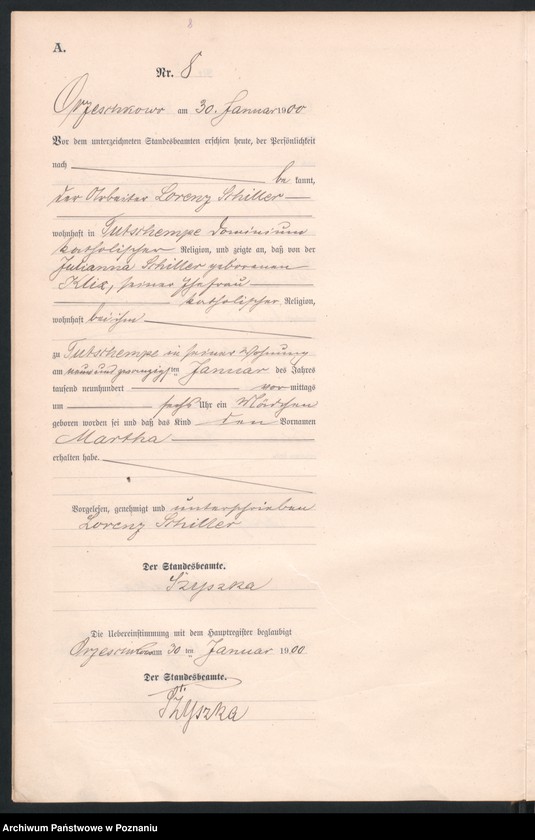 8
A.
Nr. 8
Orzeschkowo am 30. Januar 1900
Vor dem unterzeichneten Standesbeamten erschien heute, der Persönlichkeit
nach
be kannt,
der Arbeiter Lorenz Schiller
wohnhaft in Tutschempe Dominium
katholischer Religion, und zeigte an, daß von der
Julianna Schiller geborenen
Klix, seiner Ehefrau
katholischer Religion,
wohnhaft bei ihm
zu Tutschempe in seiner Wohnung
am neun und zwanzigsten Januar des Jahres
tausend neunhundert vor mittags
um sechs Uhr ein Mädchen
geboren worden sei und daß das Kind den Vornamen
Martha
erhalten habe.
Vorgelesen, genehmigt und unterschrieben
Lorenz Schiller
Der Standesbeamte.
Szyszka
Die Uebereinstimmung mit dem Hauptregister beglaubigt
am 30 ten Januar 1900
Der Standesbeamte.
Szyszka
Archiwum Państwowe w Poznaniu